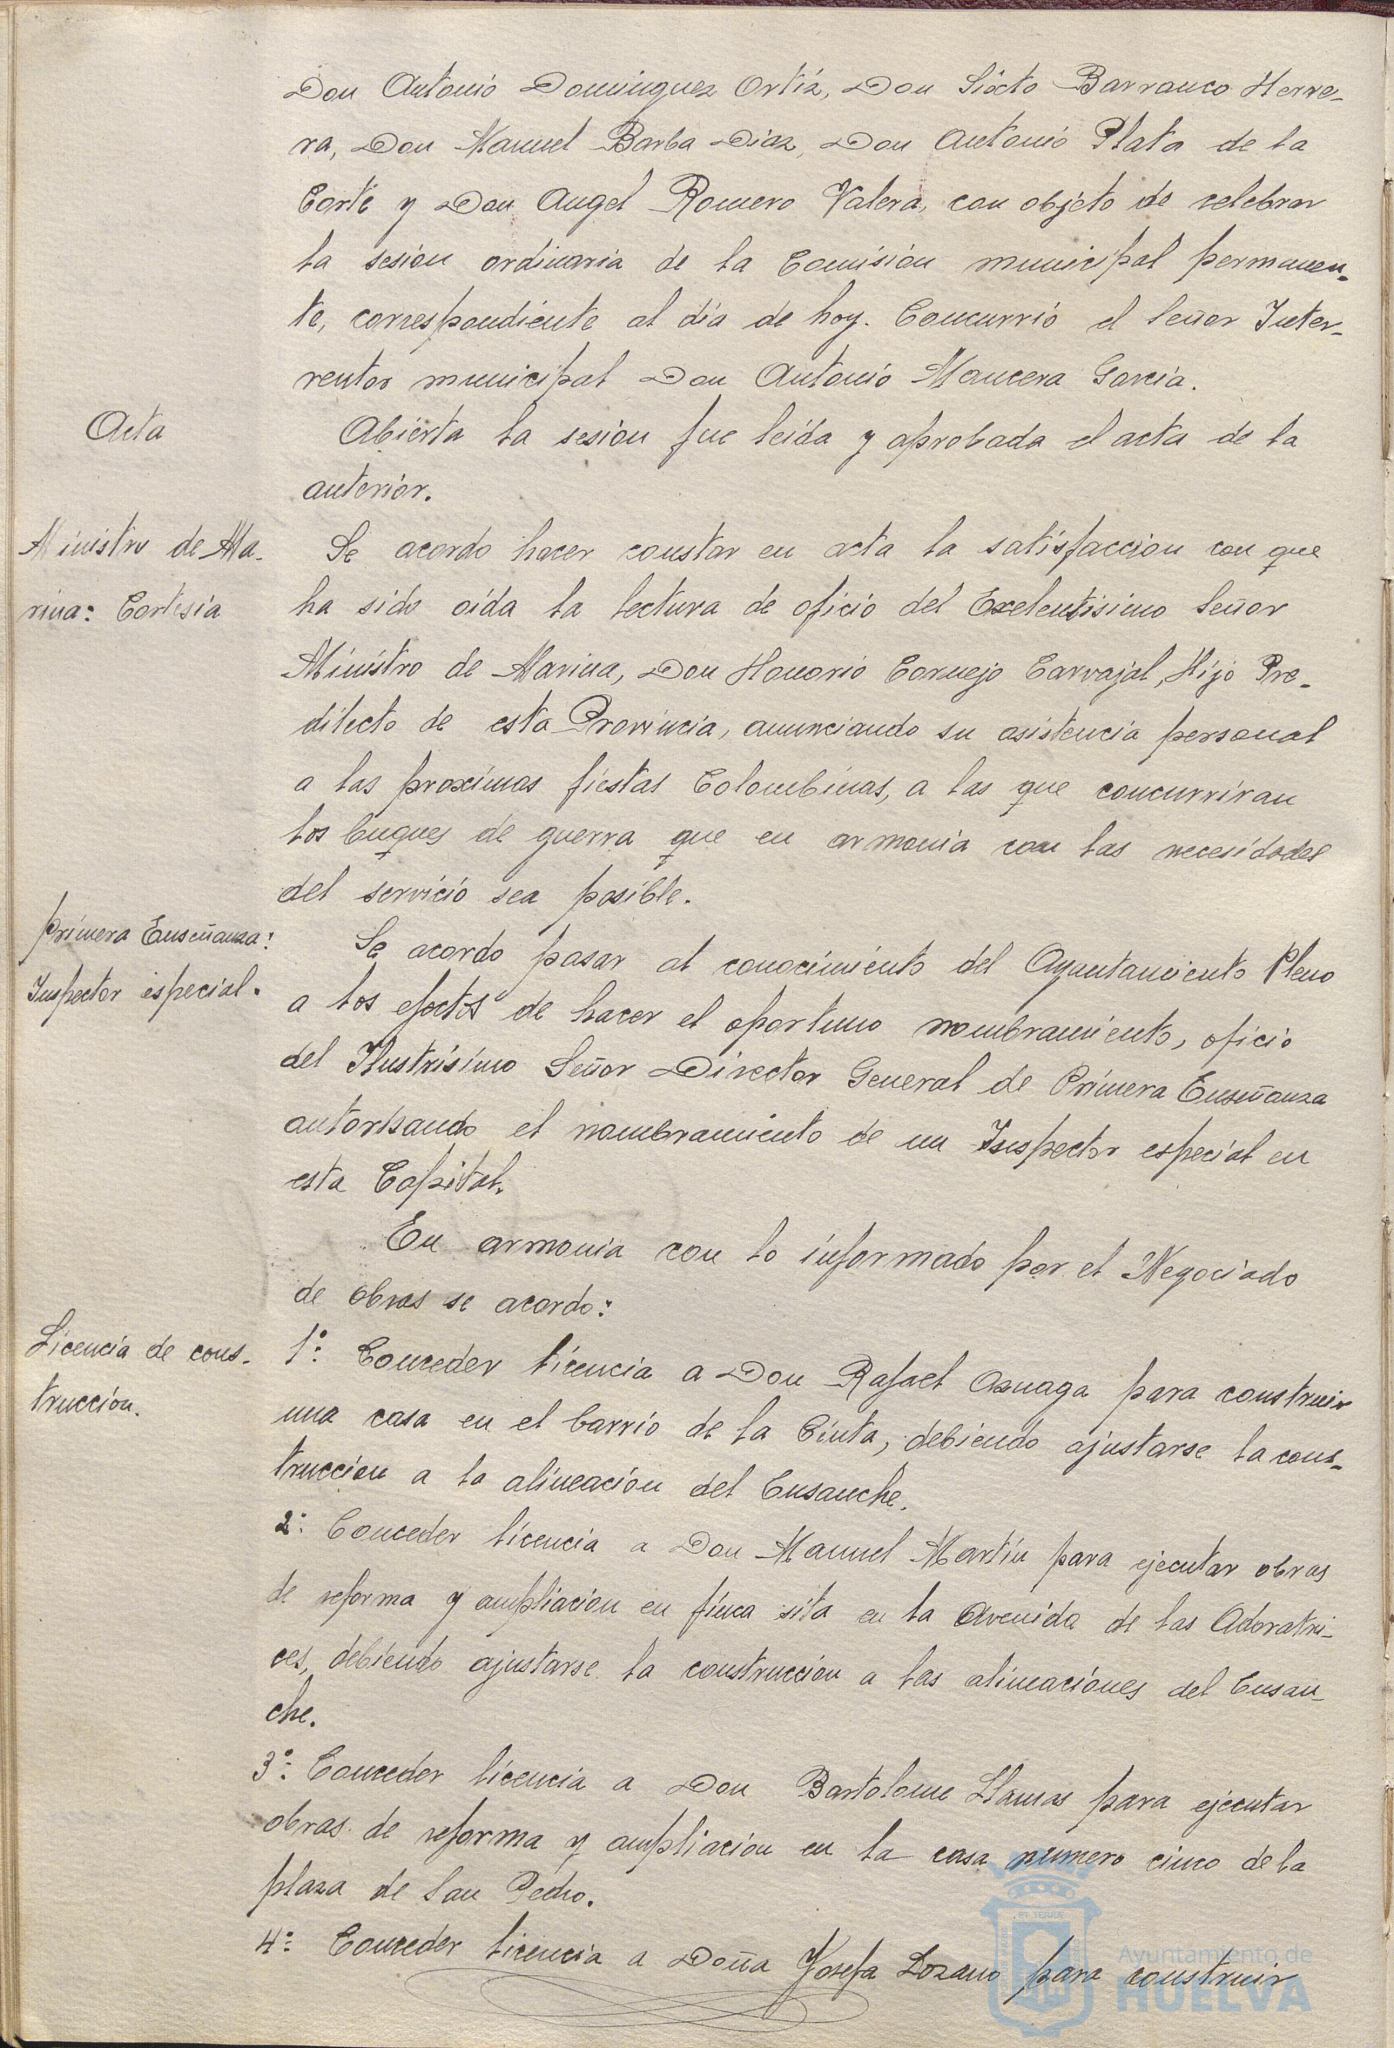 Don Antonio Dominguez Ortiz, Don Sixto Barranco Herre-
ra, Don Manuel Barba Diaz, Don Antonio Plata de la
Corte y Don Angel Romero Valera, con objeto de celebrar
la sesion ordinaria de la Comisión municipal permanen-
te, correspondiente al día de hoy. Concurrió el Señor Inter-
ventor municipal Don Antonio Mancera Garcia.
Acta
Abierta la sesion fue leida y aprobada el acta de la
anterior.
Ministro de Ma-
rina: Cortesia
Se acordo hacer constar en acta la satisfaccion con que
ha sido oida la lectura de oficio del Exelentisimo Señor
Ministro de Marina, Don Honorio Cornejo Carvajal, Hijo Pre-
dilecto de esta Provincia, anunciando su asistencia personal
a las proximas fiestas Colombinas, a las que concurriran
los buques de guerra que en armonia con las necesidades
del servicio sea posible.
primera Enseñanza:
Inspector especial.
Se acordo pasar al conocimiento del Ayuntamiento Pleno
a los efectos de hacer el oportuno nombramiento, oficio
del Ilustrísimo Señor Director General de Primera Enseñanza
autorisando el nombramiento de un Inspector especial en
esta Capital.
En armonia con lo informado por el Negociado
de obras se acordo:
Licencia de cons-
trucción.
1º: Conceder licencia a Don Rafael Azuaga para construir
una casa en el barrio de la Cinta, debiendo ajustarse la cons-
truccion a la alineación del Ensanche.
2º: Conceder licencia a Don Manuel Martín para ejecutar obras
de reforma y ampliacion en finca sita en la Avenida de las Adoratri-
ces, debiendo ajustarse la construcción a las alineaciones del Ensan-
che.
3º: Conceder licencia a Don Bartolome Llamas para ejecutar
obras de reforma y ampliacion en la casa numero cinco de la
plaza de San Pedro.
4º: Conceder licencia a Doña Josefa Lozano para construir
Ayuntamiento de
HUELVA